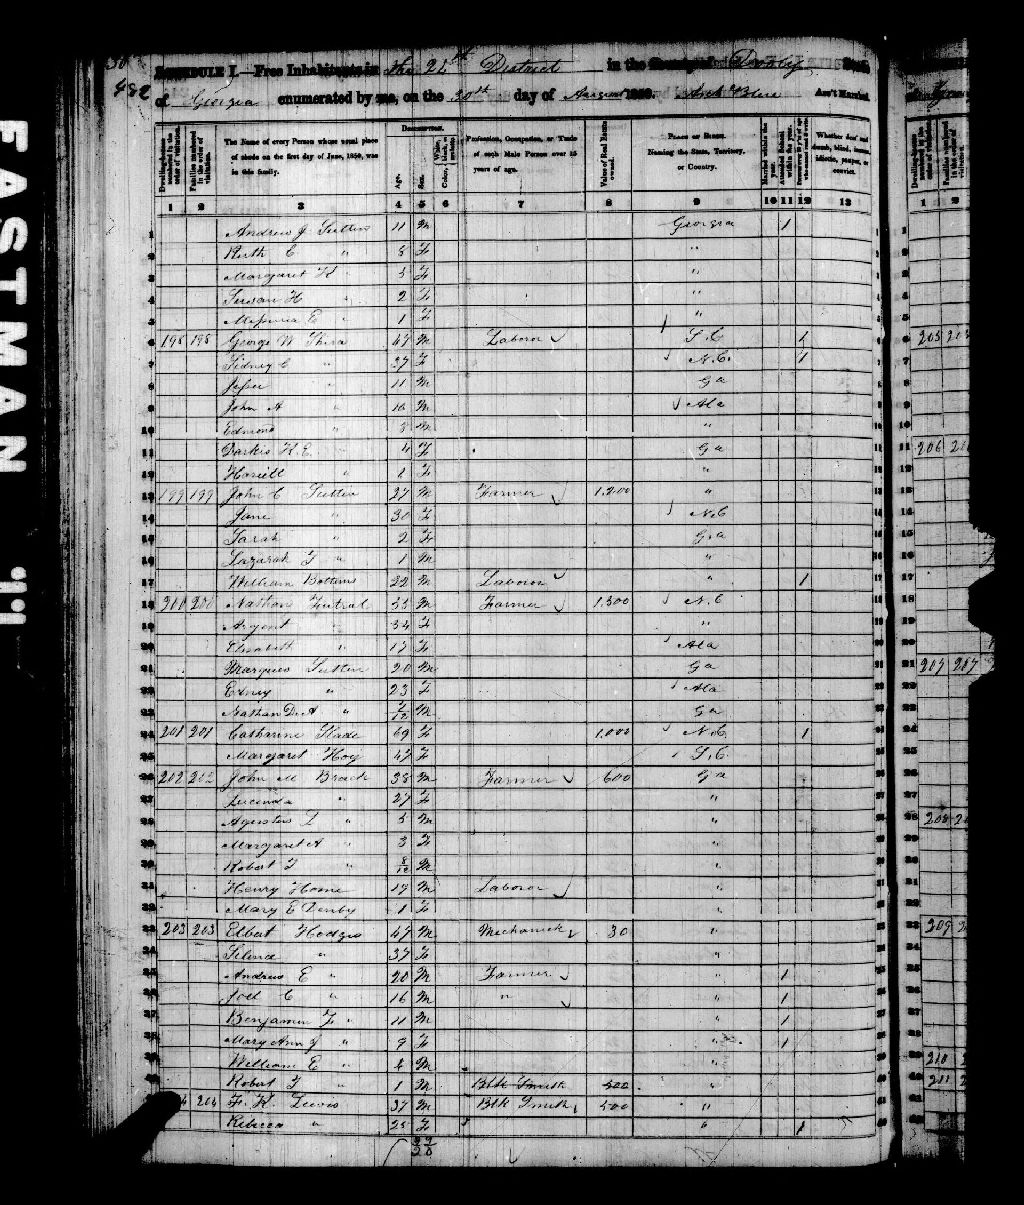 482
SCHEDULE I.—Free Inhabitants in the 21th District in the County of Dooly State
of Georgia enumerated by me, on the 30th day of August 1850. Ass't Marshal.
Dwelling-houses numbered in the order of visitation.
Families numbered in the order of visitation.
The Name of every Person whose usual place of abode on the first day of June, 1850, was in this family.
DESCRIPTION.
Age.
Sex.
Color, White, black, or mulatto.
Profession, Occupation, or Trade of each Male Person over 15 years of age.
Value of Real Estate owned.
PLACE OF BIRTH. Naming the State, Territory, or Country.
Married within the year.
Attended School within the year.
Persons over 20 y'rs of age who cannot read & write.
Whether deaf and dumb, blind, insane, idiotic, pauper, or convict.
1 2 3 4 5 6 7 8 9 10 11 12 13
1 Andrew J Sutten 11 M Georgia 1
2 Ruth C " 8 F "
3 Margaret H " 5 F "
4 Susan H " 2 F "
5 E " 1 F "
6 198 198 George W 47 M Laboror S.C 1
7 Sidney C " 37 F N.C. 1
8 Jesse " 11 M Ga
9 John A " 10 M Ala
10 Edmond " M "
11 Darkis H.E. " 4 F Ga
12 Hariett " 1 F "
13 199 199 John C Sutten 27 M Farmer 1.200 "
14 Jane " 30 F N.C
15 Sarah " 2 F Ga
16 Lazarah T " 1 M "
17 William Bottoms 22 M Laboror " 1
18 200 200 Nathan Futral 35 M Farmer 1.300 N.C
19 Argent " 34 F "
20 Elisabeth " 17 F Ala
21 Marques Sutten 20 M Ga
22 Edney " 23 F Ala
23 Nathan De A " 7/12 M Ga
24 201 201 Catharine Slade 69 F 1.000 N.C 1
25 Margaret Hog 47 F S.C
26 202 202 John M Brack 38 M Farmer 600 Ga
27 Lucinda " 27 F "
28 Agustus L " 5 M "
29 Margaret A " 3 F "
30 Robert T " 8/12 M "
31 Henry Horne 19 M Laboror "
32 Mary E Denby 1 F "
33 203 203 Elbert Hodges 47 M Mechanick 30 "
34 Selina " 37 F "
35 Andrew E " 20 M Farmer " 1
36 Joel C " 16 M " " 1
37 Benjamin F " 11 M " 1
38 Mary Ann J " 9 F " 1
39 William E " 4 M "
40 Robert T " 1 M Blk Smith 500 "
41 204 F. K. Lewis 37 M Blk Smith 500 "
42 Rebecca " 25 F " 1
EASTMAN
205
206
207 207
208
209
210
211